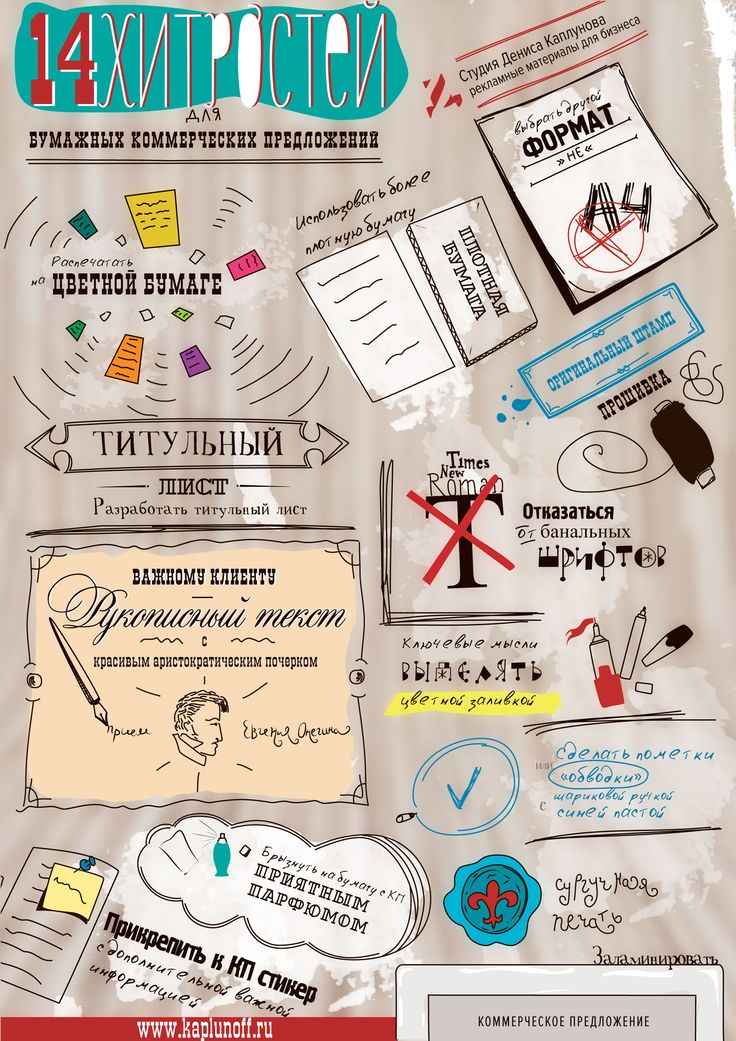 14 ХИТРОСТЕЙ
для
БУМАЖНЫХ КОММЕРЧЕСКИХ ПРЕДЛОЖЕНИЙ
Студия Дениса Каплунова
рекламные материалы для бизнеса
выбрать другой
ФОРМАТ
» НЕ «
А4
Использовать более
плотную бумагу
ПЛОТНАЯ
БУМАГА
Распечатать
на ЦВЕТНОЙ БУМАГЕ
ОРИГИНАЛЬНЫЙ ШТАМП
ПРОШИВКА
ТИТУЛЬНЫЙ
ЛИСТ
Разработать титульный лист
Times
New
Roman
T
Отказаться
от банальных
шрифтов
ВАЖНОМУ КЛИЕНТУ
Рукописный текст
с
красивым аристократическим почерком
прием Евгения Онегина
Ключевые мысли
ВЫДЕЛЯТЬ
цветной заливкой
или
Сделать пометки
«обводки»
с шариковой ручкой
синей пастой
Брызнуть на бумагу с КП
ПРИЯТНЫМ
ПАРФЮМОМ
Прикрепить к КП стикер
с дополнительной важной
информацией
сургучная
печать
Заламинировать
КОММЕРЧЕСКОЕ ПРЕДЛОЖЕНИЕ
www.kaplunoff.ru